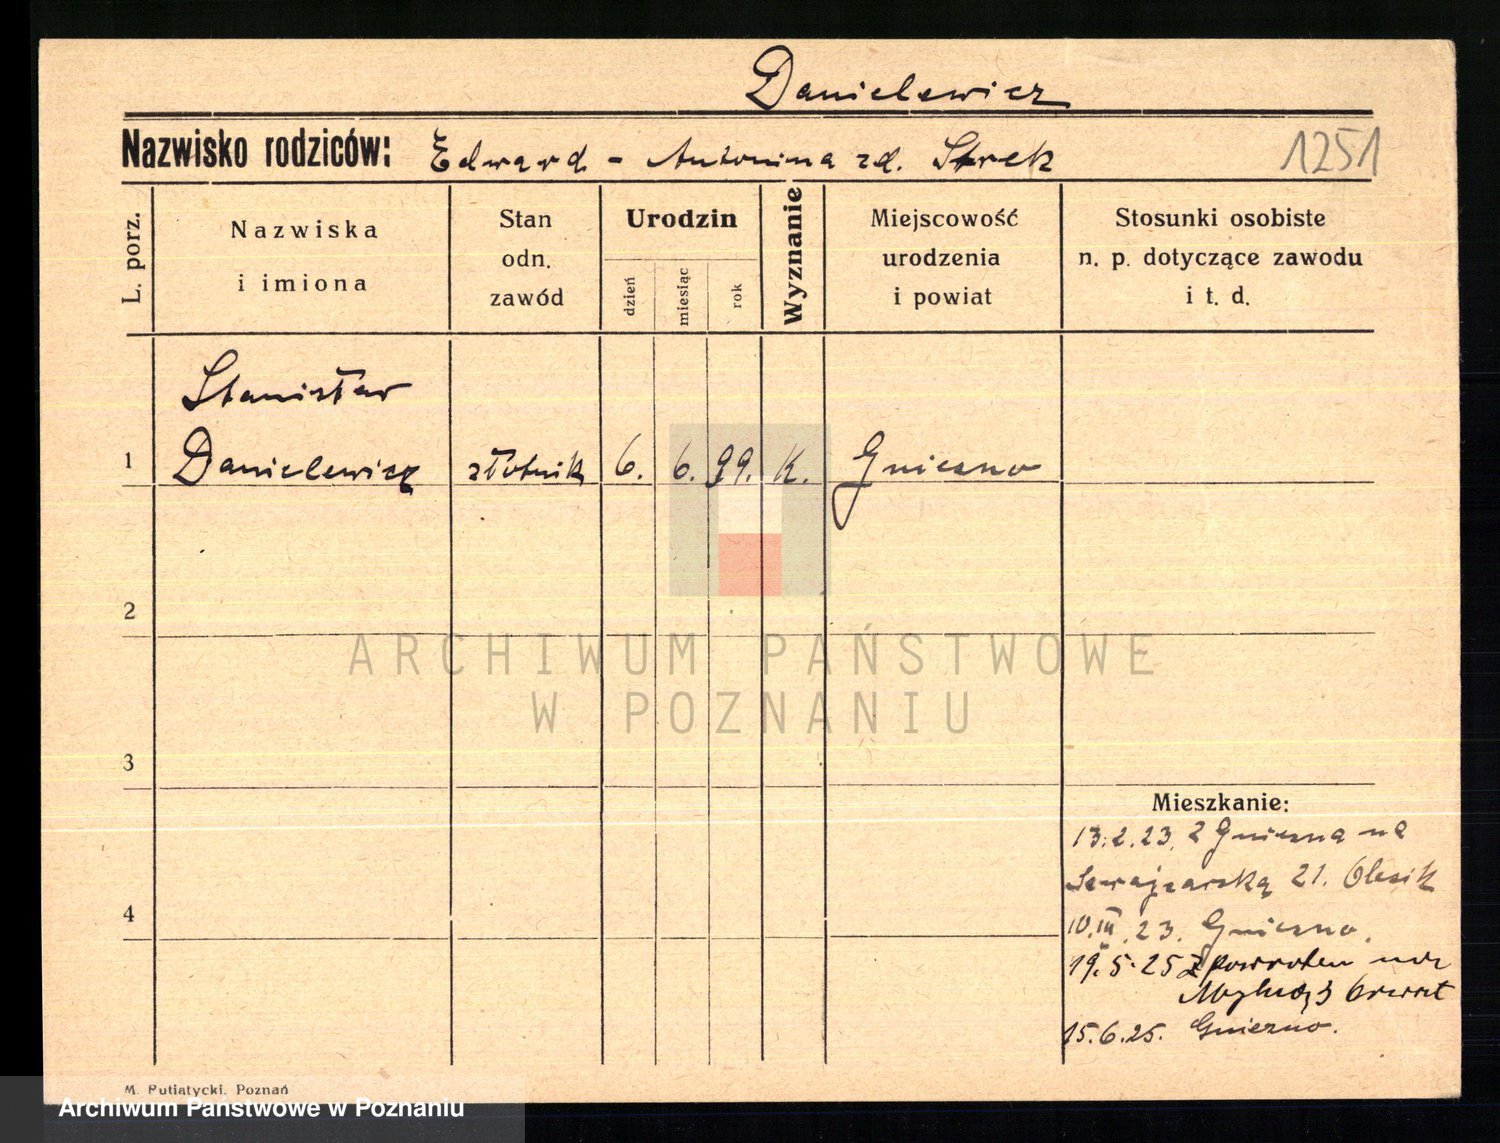 Danielewicz
Nazwisko rodziców: Edward - Antonina zd. Strek 1251
L. porz.
Nazwiska
i imiona
Stan
odn.
zawód
Urodzin
dzień
miesiąc
rok
Wyznanie
Miejscowość
urodzenia
i powiat
Stosunki osobiste
n. p. dotyczące zawodu
i t. d.
Stanisław
1 Danielewicz złotnik 6. 6. 99. K. Gniezno
2
3
4
Mieszkanie:
13.2.23 z Gniezna na
Szwajcarską 21.
10.III.23. Gniezno.
19.5.25 z powrotem
3
15.6.25. Gniezno.
ARCHIWUM PAŃSTWOWE
W POZNANIU
M. Putiatycki, Poznań
Archiwum Państwowe w Poznaniu